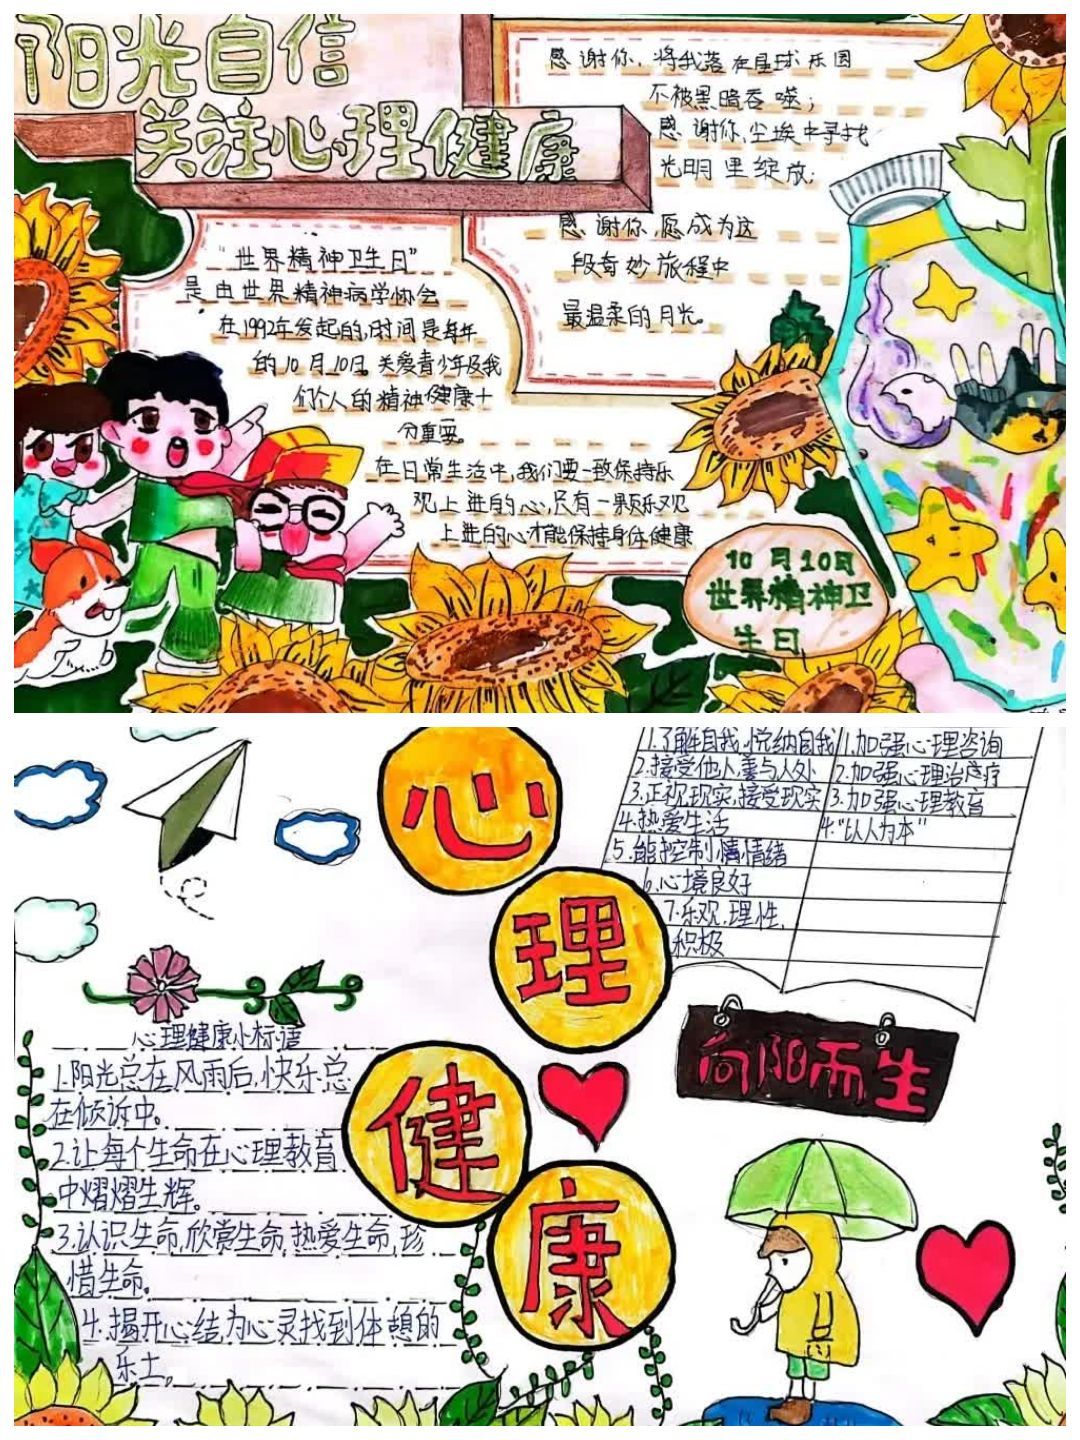 阳光自信
关注心理健康
感谢你,将我落在星球乐园
不被黑暗吞噬;
感谢你,尘埃中寻找
光明里绽放;
感谢你,愿成为这
段奇妙旅程中
最温柔的月光。
“世界精神卫生日”
是由世界精神病学协会
在1992年发起的,时间是每年
的10月10日。关爱青少年及我
们个人的精神健康十
分重要。
在日常生活中,我们要一致保持乐
观上进的心,只有一颗乐观
上进的心才能保持身体健康
10月10日
世界精神卫
生日
心
理
健
康
1.了解自我,悦纳自我
2.接受他人,善与人处
3.正视现实,接受现实
4.热爱生活
5.能控制情情绪
6.心境良好
7.乐观,理性,
积极
1.加强心理咨询
2.加强心理治疗
3.加强心理教育
4.“以人为本”
向阳而生
心理健康小标语
1.阳光总在风雨后,快乐总
在倾诉中。
2.让每个生命在心理教育
中熠熠生辉。
3.认识生命,欣赏生命,热爱生命,珍
惜生命。
4.揭开心结为心灵找到休憩的
乐土。